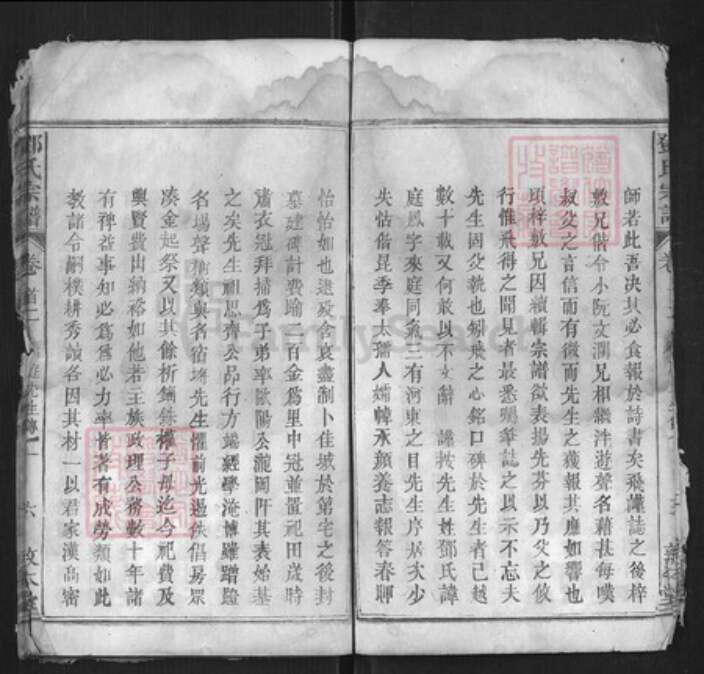 師若此吾決其必食報於詩書矣飛謹誌之後梓
敷兄偕令小阮文瀾兄相繼泮遊聲名藉甚每嘆
叔父之言信而有徵而先生之獲報其應如響也
項梓敷兄因續輯宗譜欲表揚先芬以乃父之攸
行惟飛得之聞見者最悉囑筆誌之以示不忘夫
先生因父執也矧飛之心銘口碑於先生者已越
數十載又何敢以不文辭 謹按先生姓鄧氏諱
庭鳳字來庭同氣三有河東之目先生序居次少
失怙偕昆季奉太孺人孀幃承顏養志報答春暉
怡怡如也逮歿含哀盡制卜佳城於第宅之後封
墓建碑計費踰二百金爲里中冠並置祀田歲時
肅衣冠拜掃爲子弟率歐陽公瀧岡阡其表始基
之矣先生祖思齊公品行方端經學淹博羅蹭蹬
名場聲稱頗與名宿埒先生懼前光遏佚倡房眾
湊金起祭又以其餘析錙銖權子母迄今祀費及
興賢費出納裕如他若主族政理公務數十年諸
有裨益事知必爲爲必力率皆著有成勞類如此
教諸令嗣樸耕秀讀各因其材一以君家漢高密
鄧氏宗譜
卷首二
庭先生傳
六
敦本堂
FamilySearch